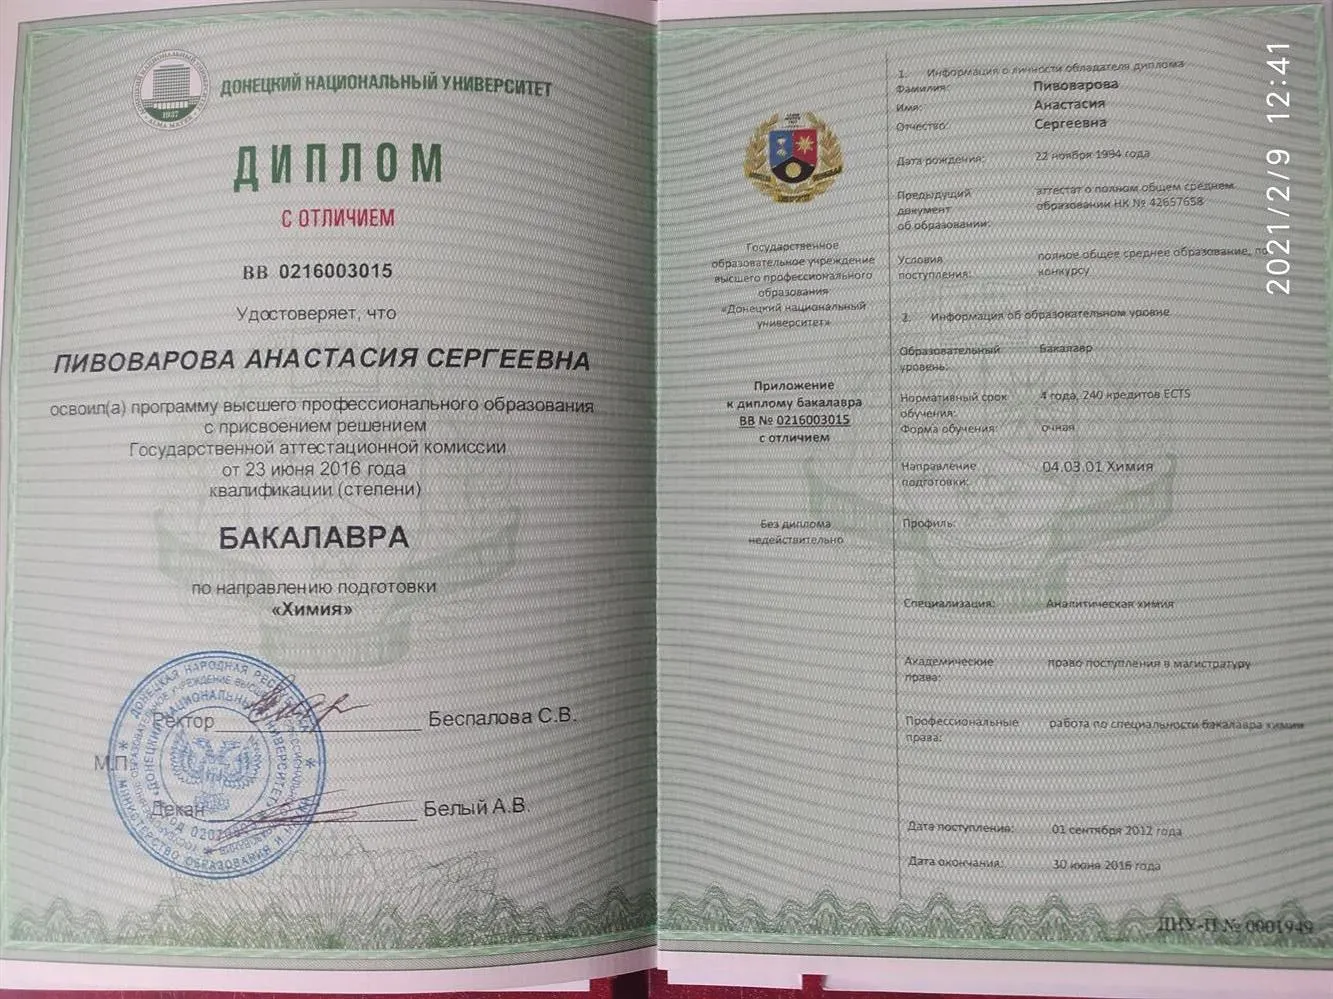 ДОНЕЦКИЙ НАЦИОНАЛЬНЫЙ УНИВЕРСИТЕТ
1937
ДИПЛОМ
С ОТЛИЧИЕМ
ВВ 0216003015
Удостоверяет, что
ПИВОВАРОВА АНАСТАСИЯ СЕРГЕЕВНА
освоил(а) программу высшего профессионального образования
с присвоением решением
Государственной аттестационной комиссии
от 23 июня 2016 года
квалификации (степени)
БАКАЛАВРА
по направлению подготовки
«Химия»
ДОНЕЦКАЯ НАРОДНАЯ РЕСПУБЛИКА
МИНИСТЕРСТВО ОБРАЗОВАНИЯ И
Ректор Беспалова С.В.
М.П.
Декан Белый А.В.
Государственное
образовательное учреждение
высшего профессионального
образования
«Донецкий национальный
университет»
Приложение
к диплому бакалавра
ВВ № 0216003015
с отличием
Без диплома
недействительно
1. Информация о личности обладателя диплома
Фамилия: Пивоварова
Имя: Анастасия
Отчество: Сергеевна
Дата рождения: 22 ноября 1994 года
Предыдущий аттестат о полном общем среднем
документ образовании НК № 42657658
об образовании:
Условия полное общее среднее образование, по
поступления: конкурсу
2. Информация об образовательном уровне
Образовательный Бакалавр
уровень:
Нормативный срок 4 года, 240 кредитов ECTS
обучения:
Форма обучения: очная
Направление 04.03.01 Химия
подготовки:
Профиль:
Специализация: Аналитическая химия
Академические право поступления в магистратуру
права:
Профессиональные работа по специальности бакалавра химии
права:
Дата поступления: 01 сентября 2012 года
Дата окончания: 30 июня 2016 года
ДНУ-П № 0001949
2021/2/9 12:41